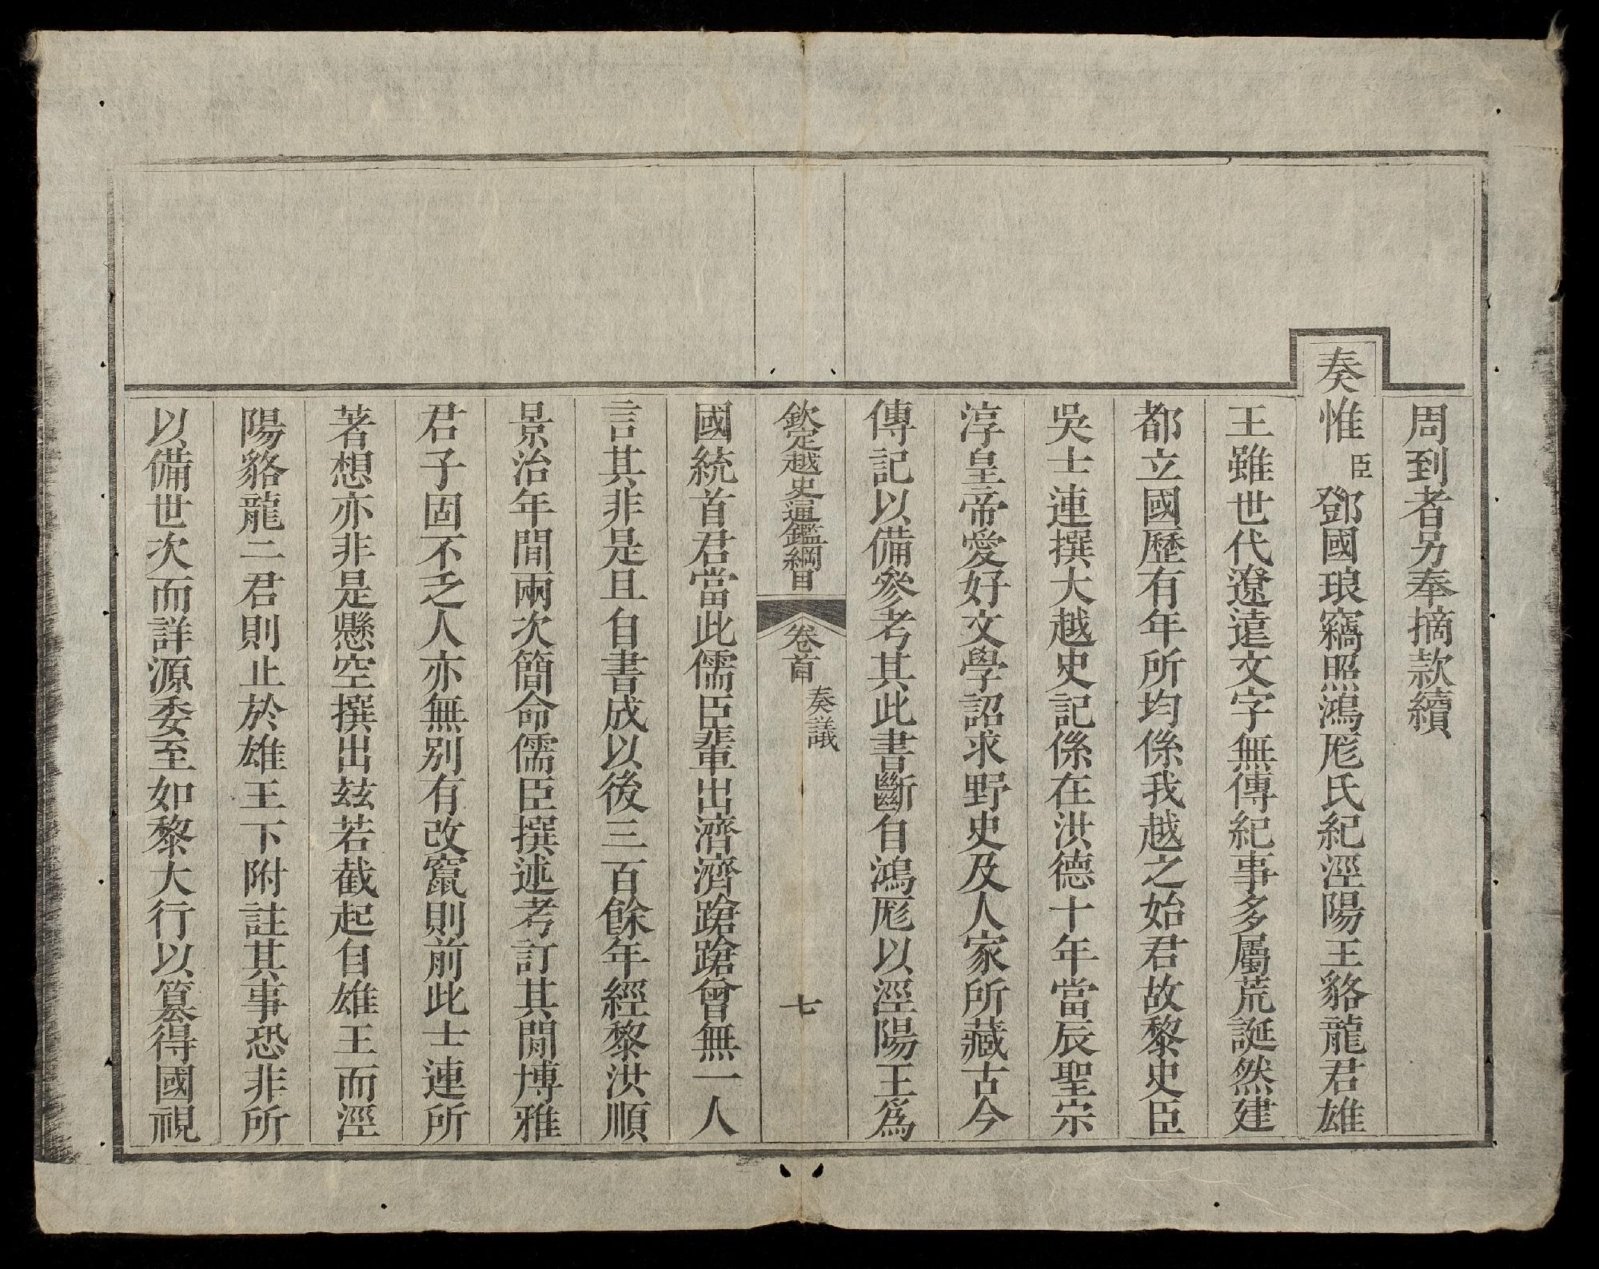 周到者另奉摘款續
奏惟臣鄧國琅竊照鴻厖氏紀涇陽王貉龍君雄
王雖世代遼遠文字無傳紀事多屬荒誕然建
都立國歷有年所均係我越之始君故黎史臣
吳士連撰大越史記係在洪德十年當辰聖宗
淳皇帝愛好文學詔求野史及人家所藏古今
傳記以備參考其此書斷自鴻厖以涇陽王爲
欽定越史通鑑綱目 卷首 奏議 七
國統首君當此儒臣輩出濟濟蹌蹌曾無一人
言其非是且自書成以後三百餘年經黎洪順
景治年間兩次簡命儒臣撰述考訂其間博雅
君子固不乏人亦無別有改竄則前此士連所
著想亦非是懸空撰出玆若截起自雄王而涇
陽貉龍二君則止於雄王下附註其事恐非所
以備世次而詳源委至如黎大行以篡得國視